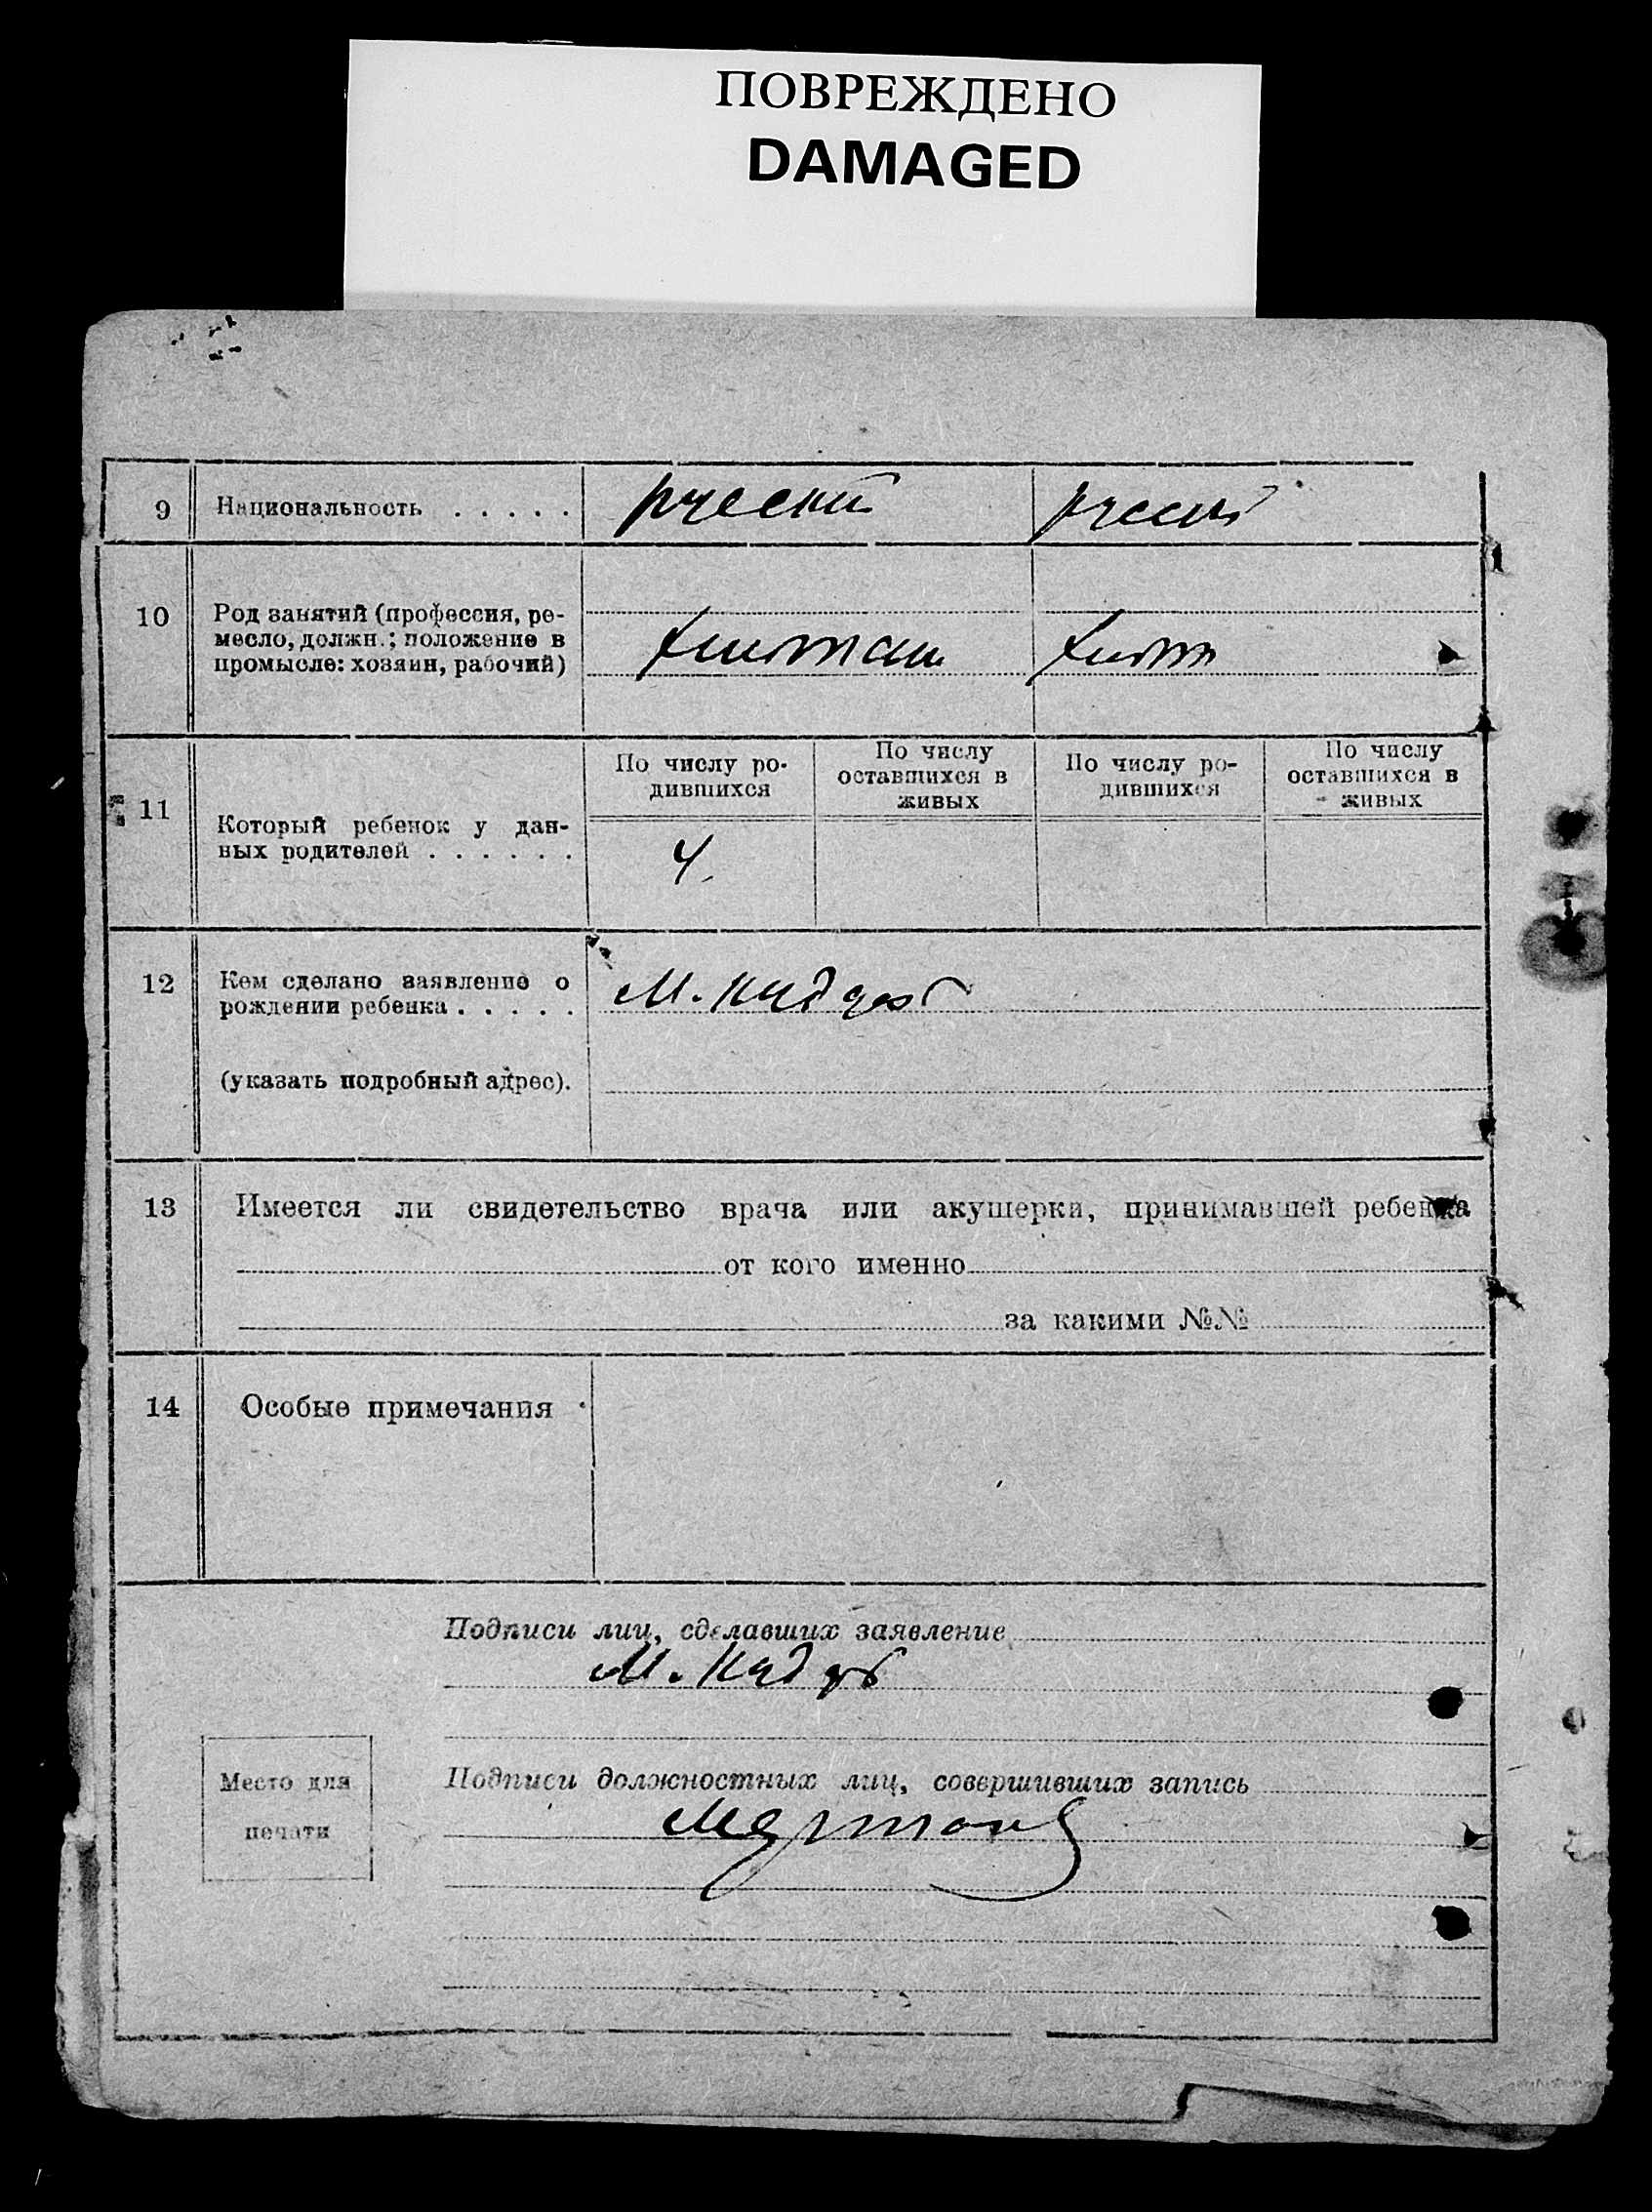 ПОВРЕЖДЕНО
DAMAGED
9 Национальность . . . . . русский русский
10 Род занятий (профессия, ре-
месло, должн.; положение в
промысле: хозяин, рабочий)
11 Который ребенок у дан-
ных родителей . . . . . .
По числу ро-
дившихся
По числу
оставшихся в
живых
По числу ро-
дившихся
По числу
оставшихся в
живых
4
12 Кем сделано заявление о
рождении ребенка . . . . .
(указать подробный адрес).
М.
13 Имеется ли свидетельство врача или акушерки, принимавшей ребенка
от кого именно
за какими №№
14 Особые примечания
Подписи лиц, сделавших заявление
М.
Место для
печати
Подписи должностных лиц, совершивших запись